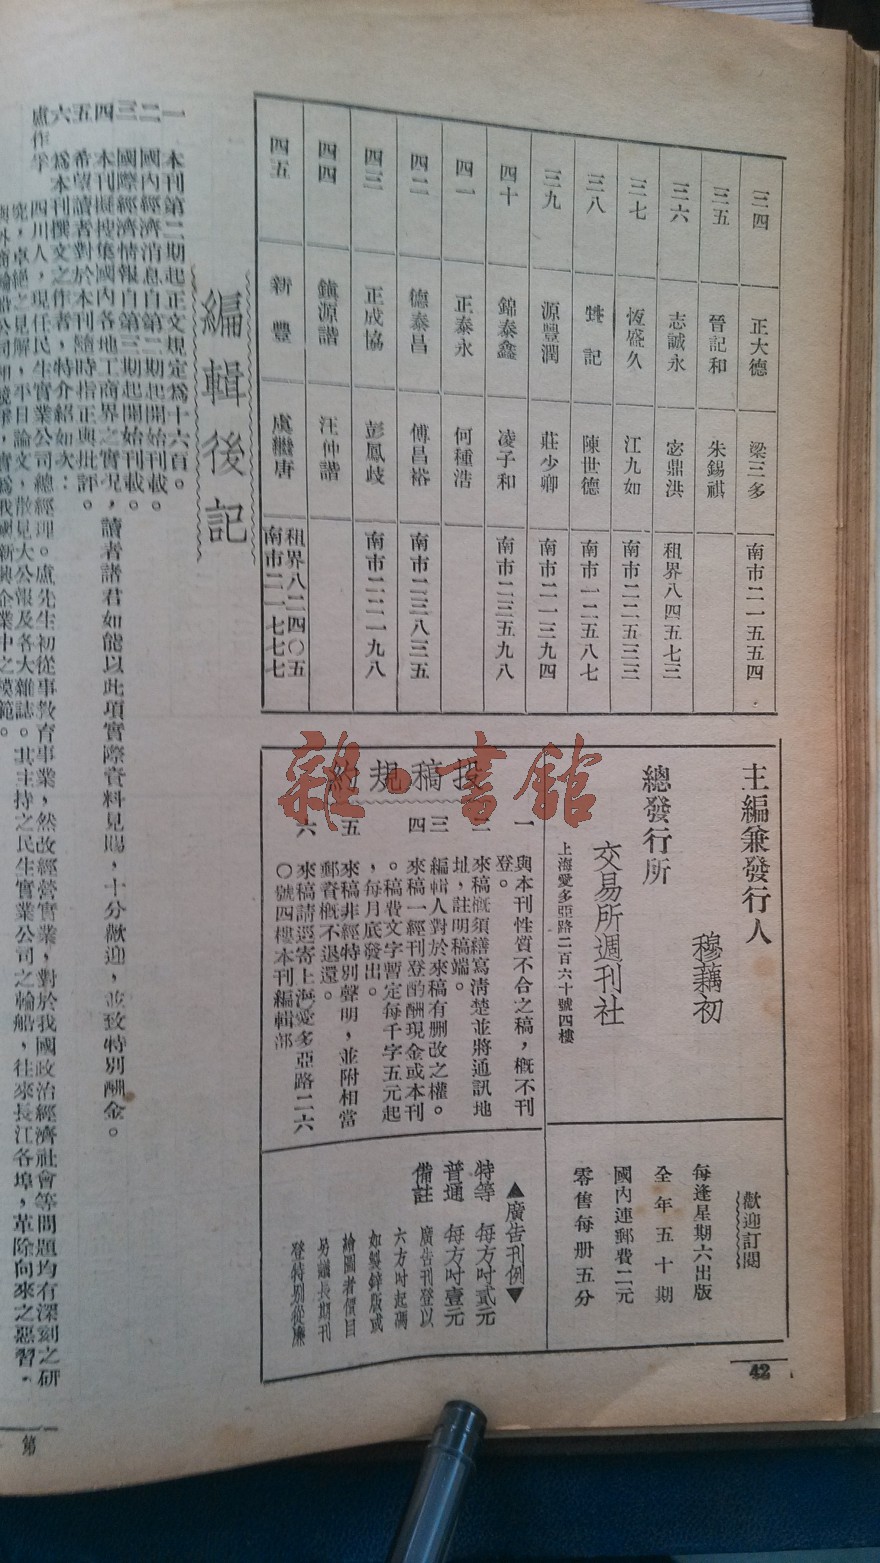 三四　正大德　梁三多　南市二一五五四
三五　晉記和　朱錫祺
三六　志誠永　宓鼎洪　租界八四五七三
三七　恆盛久　江九如　南市二二五三三
三八　甡記　陳世德　南市一二五八七
三九　源豐潤　莊少卿　南市二一三九四
四十　錦泰鑫　凌子和　南市二三五九八
四一　正泰永　何種浩
四二　德泰昌　傅昌裕　南市二三八三五
四三　正成協　彭鳳岐　南市二二一九八
四四　鎭源諧　汪仲諧
四五　新豐　虞繼唐　租界八二四〇五
南市二一七七七
主編兼發行人
穆藕初
總發行所
交易所週刊社
上海愛多亞路二百六十號四樓
歡迎訂閱
每逢星期六出版
全年五十期
國內連郵費二元
零售每册五分
投稿規約
一　與本刊性質不合之稿，概不刊
登。
二　來稿概須繕寫清楚並將通訊地
址，註明稿端。
三　編輯人對於來稿有删改之權。
四　來稿一經刊登酌酬現金或本刊
。稿費文字暫定每千字五元起
，每月底發出。
五　來稿非經特別聲明，並附相當
郵資概不退還。
六　來稿請逕寄上海愛多亞路二六
〇號四樓本刊編輯部
▲廣告刊例▼
特等　每方吋貳元
普通　每方吋壹元
備註　廣告刊登以
六方吋起碼
如製鋅版或
繪圖者價目
另議長期刊
登特別從廉
42
編輯後記
一　本刊第二期起正文規定爲十六頁。
二　國內經濟消息自第二期起開始刊載。
三　國際經濟情報自第三期起開始刊載。
四　本刊擬搜集國內各地工商界之實況，讀者諸君如能以此項實際資料見賜，十分歡迎，並致特別酬金。
五　希望讀者對於本刊隨時指正與批評。
六　爲本刊撰文之作者，特介紹如次：
盧作孚　四川人，現任民生實業公司總經理。盧先生初從事教育事業，然改經營實業，對於我國政治經濟社會等問題均有深刻之研
究，卓絕之見解，平日論文，散見大公報及各大雜誌。其主持之民生實業公司之輪船，往來長江各埠，革除向來之惡習，
與外商輪船公司相競爭，實爲我國新興企業中之模範。
第
雜·書館